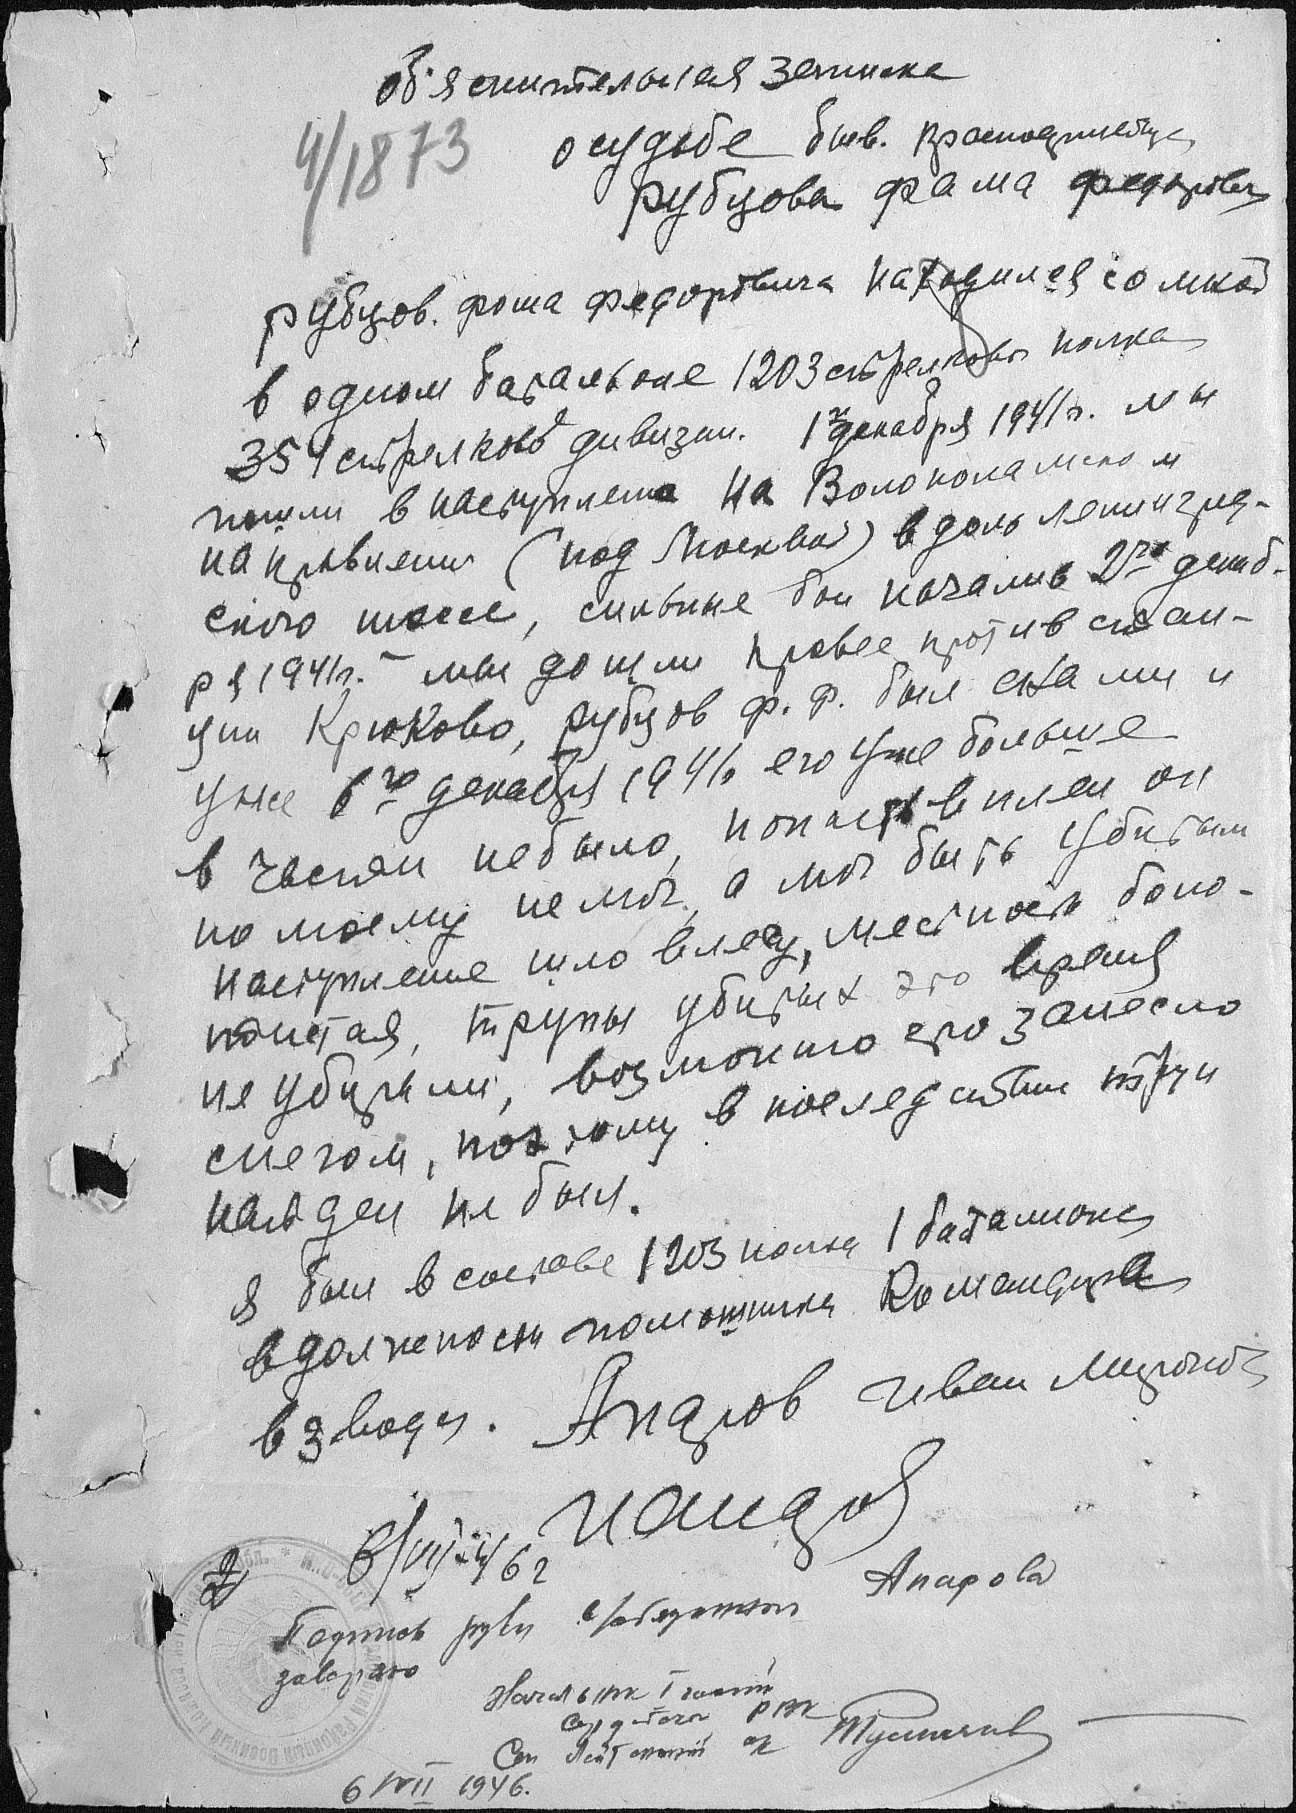 об'яснительная записка
4/1873
о судьбе бывш. красноармейца
Рубцова Фома Федорович
Рубцов. Фома Федоровича находился со мной
в одном батальоне 1203 стрелкового полка
354 стрелковой дивизии. 1го декабря 1941 г. мы
пошли в наступление на Волоколамском
направлении (под Москвой) вдоль Ленинград-
ского шоссе, сильные бои начались 2го декаб-
ря 1941 г. мы дошли правее против стан-
ции Крюково, Рубцов Ф. Ф. был с нами и
уже 6го декабря 1941 его уже больше
в части не было, попасть в плен он
по моему не мог, а мог быть убитым
наступление шло в лесу, местность боло-
тистая, трупы убитых это время
не убирали, возможно его занесло
снегом, поэтому в последствии труп
найден не был.
я был в составе 1203 полка 1 баталиона
в должности помошника командира
взвода. Апаров Иван Миронов
6/VII-46 г
2
Подпись руки Апарова
заверяю
Начальник I части
РВК
Ст Лейтенант
6 VII 1946.